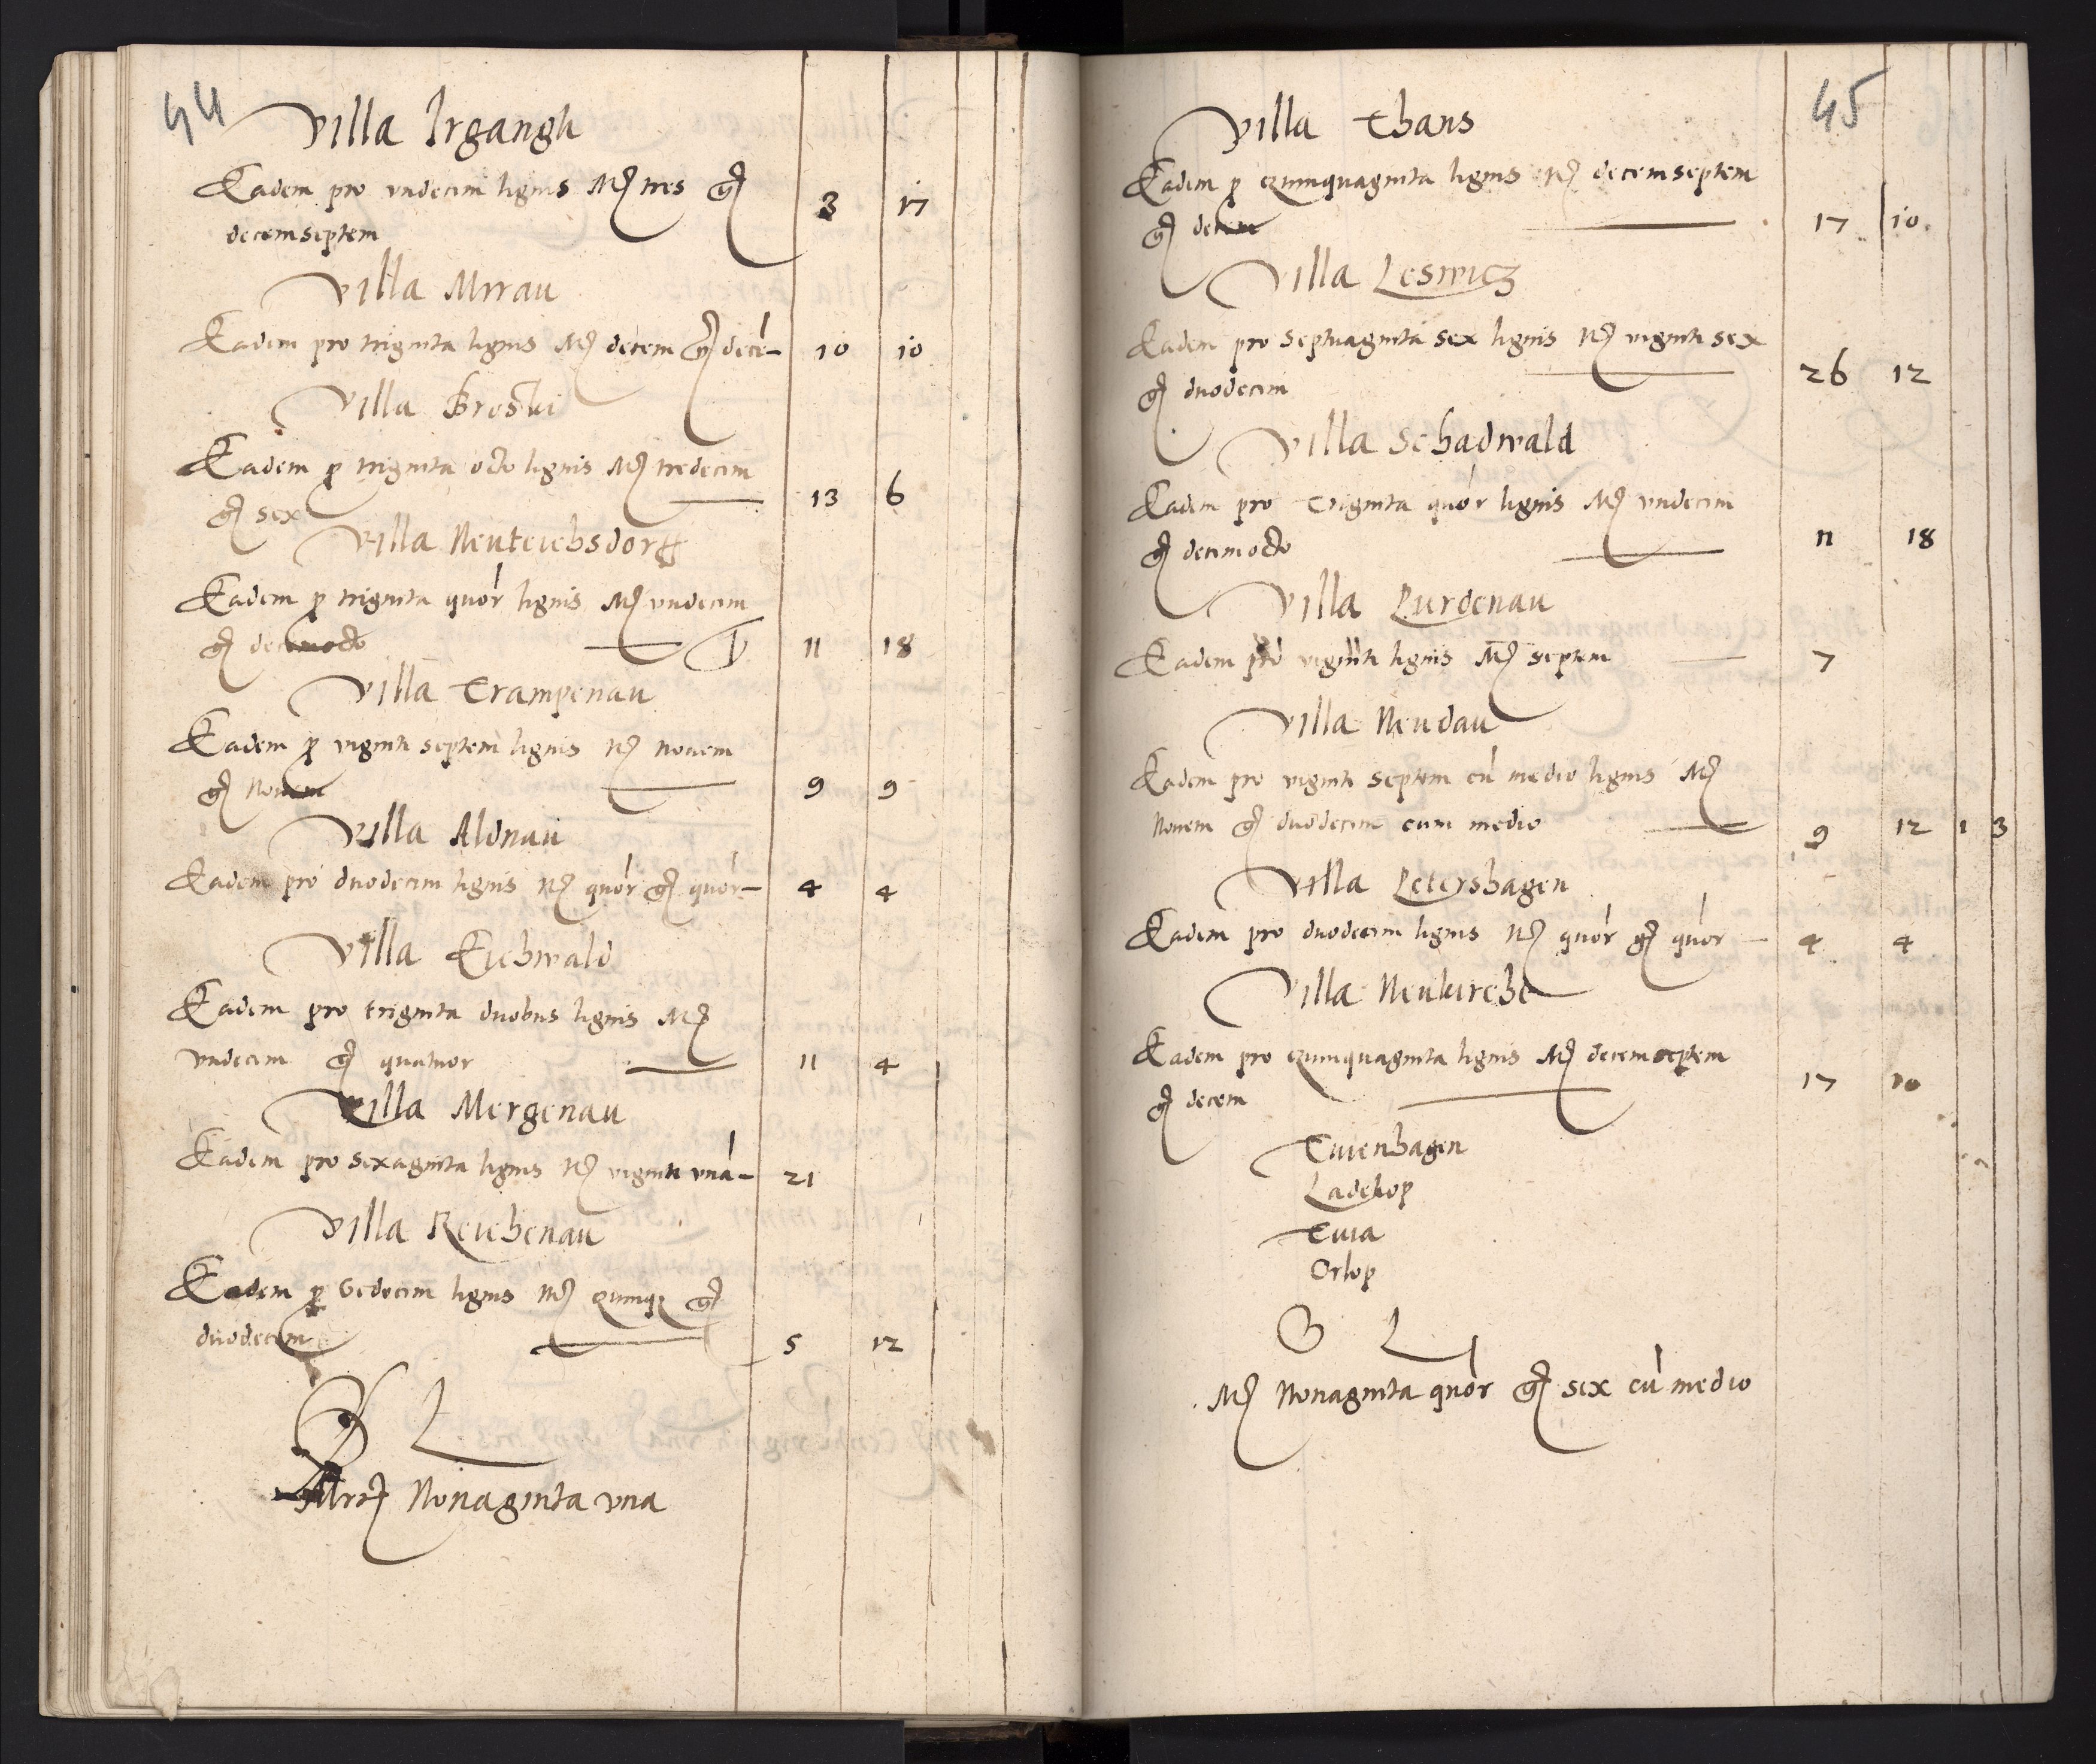 44
Villa Irgangh
Eadem pro vndecim lignis Mͬ tres gͬ 3 17
decemseptem
Villa Mirau
Eadem pro triginta lignis Mͬ decem gͬ dece— 10 10
Villa Broski
Eadem p triginta octo lignis Mͬ tredecim
gͬ sex 13 6
Villa Neuteichsdorff
Eadem p triginta quor lignis Mͬ vndecim
gͬ decimocto — 11 18
Villa Trampenau
Eadem p viginti septem lignis Mͬ Nouem
gͬ Nouem — 9 9
Villa Aldnau
Eadem pro duodecim lignis Mͬ quor gͬ quor— 4 4
Villa Eichwald
Eadem pro triginta duobus lignis Mͬ
vndecim gͬ quatuor — 11 4
Villa Mergenau
Eadem pro sexaginta lignis Mͬ viginti vna— 21
Villa Reichenau
Eadem p sedecim lignis Mͬ Quinqz gͬ
duodecim — 5 12
L
Mrc Nonaginta vna
45
Villa Thans
Eadem p Quinquaginta lignis Mͬ decemseptem
gͬ decem — 17 10
Villa Leswicz
Eadem pro septuaginta sex lignis Mͬ viginti sex
gͬ duodecim 26 12
Villa Schadwald
Eadem pro Triginta quor lignis Mͬ vndecim
gͬ decimocto — 11 18
Villa Purdenau
Eadem pro viginti lignis Mͬ septem — 7
Villa Neudau
Eadem pro viginti septem cu medio lignis Mͬ
Nouem gͬ duodecim cum medio — 9 12 1 3
Villa Petershagen
Eadem pro duodecim lignis Mͬ quor gͬ quor — 4 4
Villa Neukirche
Eadem pro Quinquaginta lignis Mͬ decemseptem
gͬ decem — 17 10
Tuienhagen
Ladekop
Tuia
Orlop
L
Mͬ Nonaginta quor gͬ sex cu medio